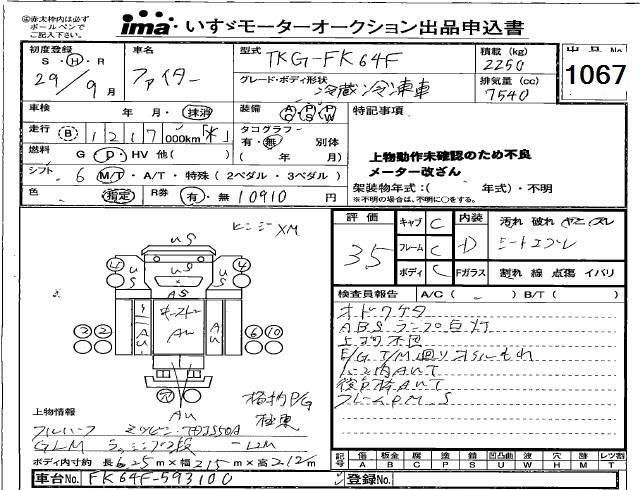 ※赤太枠内は必ず
ボールペンで
ご記入下さい。
ima いすゞモーターオークション出品申込書
初度登録
S・H・R
29/9月
車名
ファイター
型式
TKG-FK64F
積載 (kg)
2250
グレード・ボディ形状
冷蔵冷凍車
排気量 (cc)
7540
出品No
1067
車検
年 月・抹消
装備
AC PS PW
特記事項
走行
B 1217,000km
タコグラフ
有・無 別体
( 年 月)
燃料
G D・HV 他( )
上物動作未確認のため不良
メーター改ざん
シフト
6 M/T・A/T・特殊(2ペダル・3ペダル)
架装物年式:( 年式)・不明
※不明の場合は、不明に○をする。
色
指定
R券
有・無 10910 円
評価
3.5
キャブ C
フレーム C
ボディ C
内装
D
汚れ 破れ ヤニ ズレ
シートコゲ
Fガラス
割れ 線 点傷 イバリ
ヒンジXM
US
AS
AU
4
3 2
6 10
穴
AU
格納P/G
極東
検査員報告
A/C ( ) B/T ( )
ABSランプ点灯
上物不良
E/G T/M廻りオイルもれ
フレームPM.S
上物情報
フルハーフ
GLM
ボディ内寸約 長6.25m×幅2.15m×高2.12m
記号
傷 A
板金 B
腐 C
塗 P
錆 S
凹凸曲 U
波 W
穴 H
跡 M
レツ割 T
車台No. FK64F-593100
登録No.